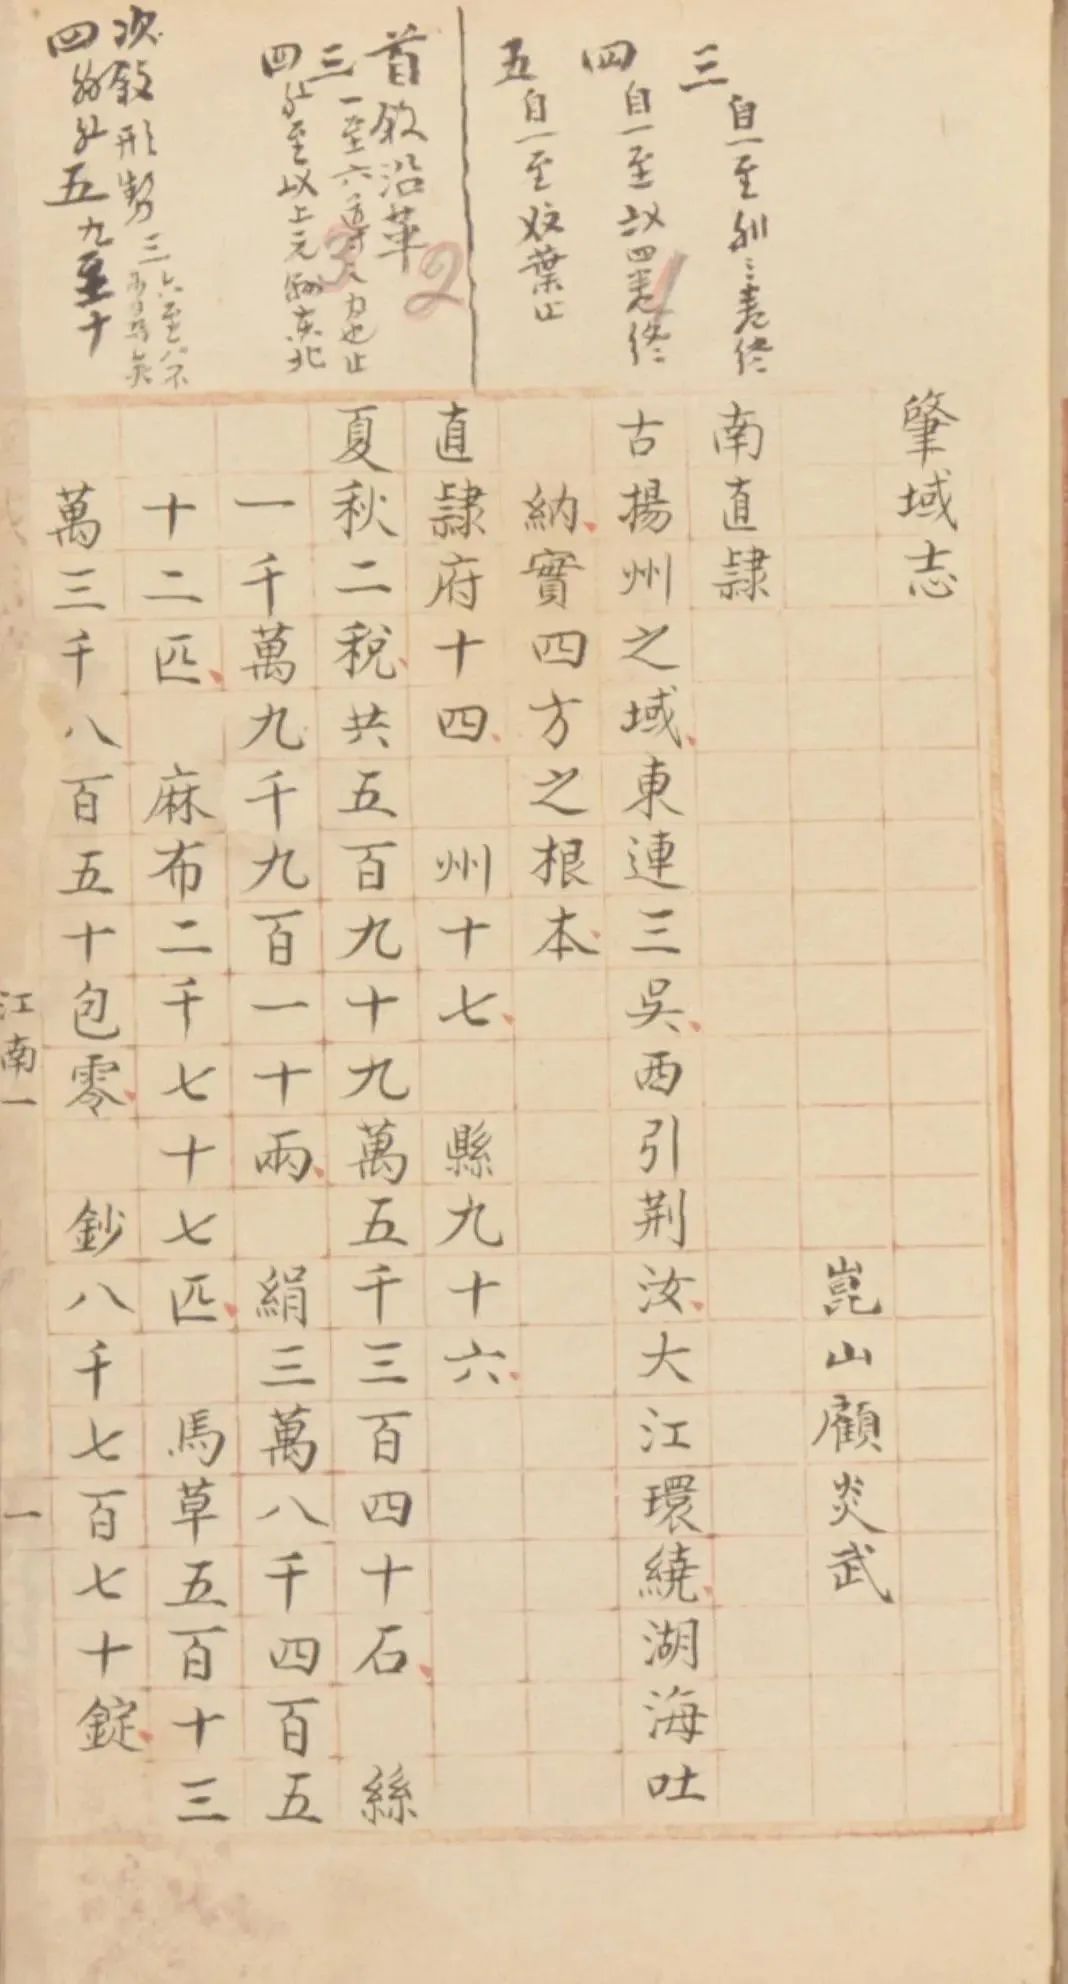 三自一至
四自一至以四
五自一至 葉止
首敘沿革
三一至六 止
四 至以上元 東北
2
次敘形勢三六至八
四 五九至十
肇域志
崑山顧炎武
南直隸
古揚州之域東連三吳西引荆汝大江環繞湖海吐
納實四方之根本
直隸府十四 州十七 縣九十六
夏秋二稅共五百九十九萬五千三百四十石 絲
一千萬九千九百一十兩 絹三萬八千四百五
十二匹 麻布二千七十七匹 馬草五百十三
萬三千八百五十包零 鈔八千七百七十錠
江南一
一